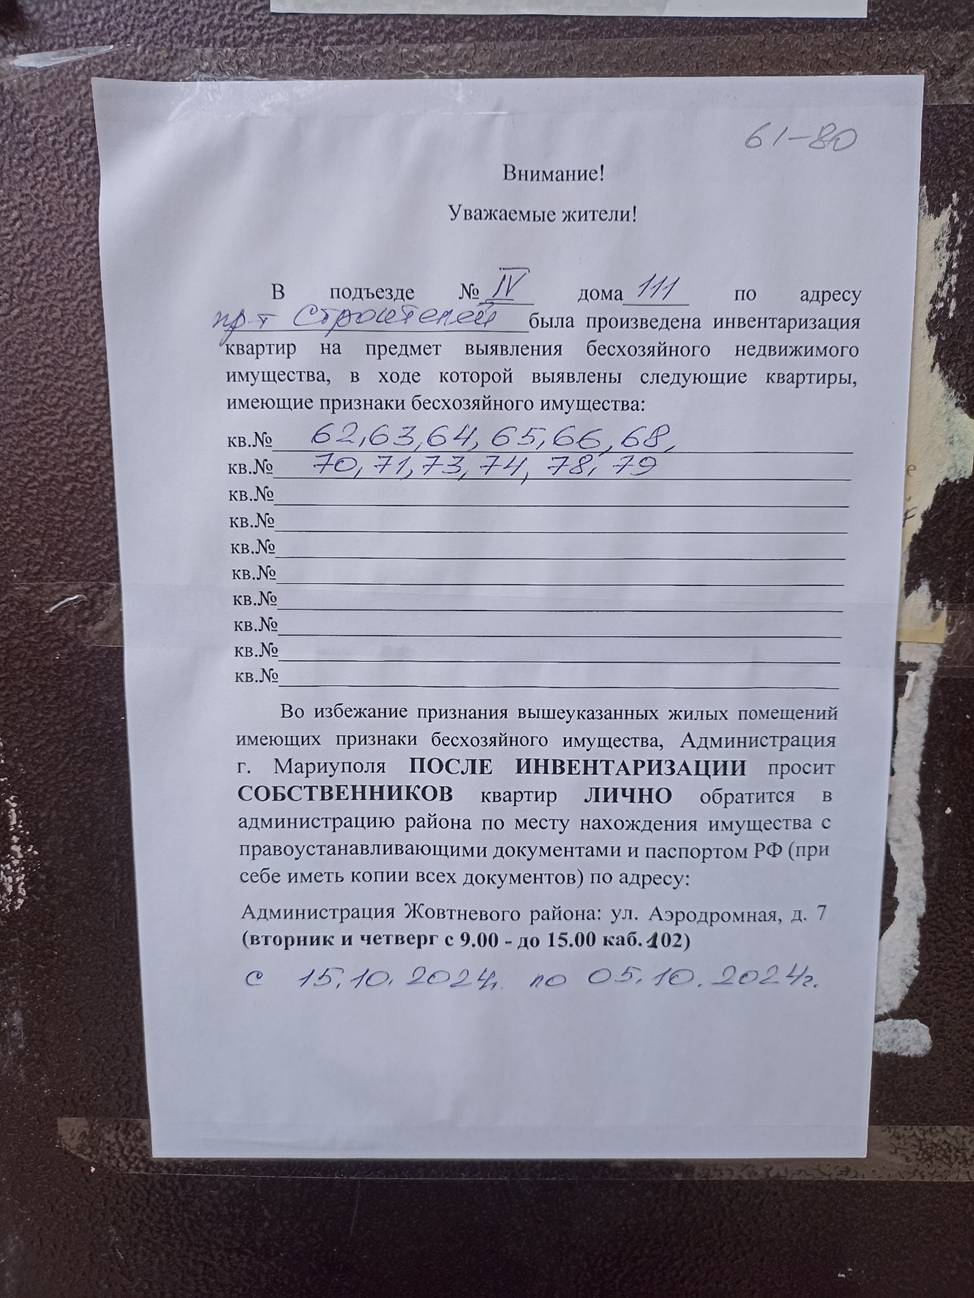 61-80
Внимание!
Уважаемые жители!
В подъезде № IV дома 111 по адресу
пр-т Строителей была произведена инвентаризация
квартир на предмет выявления бесхозяйного недвижимого
имущества, в ходе которой выявлены следующие квартиры,
имеющие признаки бесхозяйного имущества:
кв.№ 62, 63, 64, 65, 66, 68,
кв.№ 70, 71, 73, 74, 78, 79
кв.№
кв.№
кв.№
кв.№
кв.№
кв.№
кв.№
кв.№
Во избежание признания вышеуказанных жилых помещений
имеющих признаки бесхозяйного имущества, Администрация
г. Мариуполя ПОСЛЕ ИНВЕНТАРИЗАЦИИ просит
СОБСТВЕННИКОВ квартир ЛИЧНО обратится в
администрацию района по месту нахождения имущества с
правоустанавливающими документами и паспортом РФ (при
себе иметь копии всех документов) по адресу:
Администрация Жовтневого района: ул. Аэродромная, д. 7
(вторник и четверг с 9.00 - до 15.00 каб.102)
с 15.10.2024г. по 05.10.2024г.